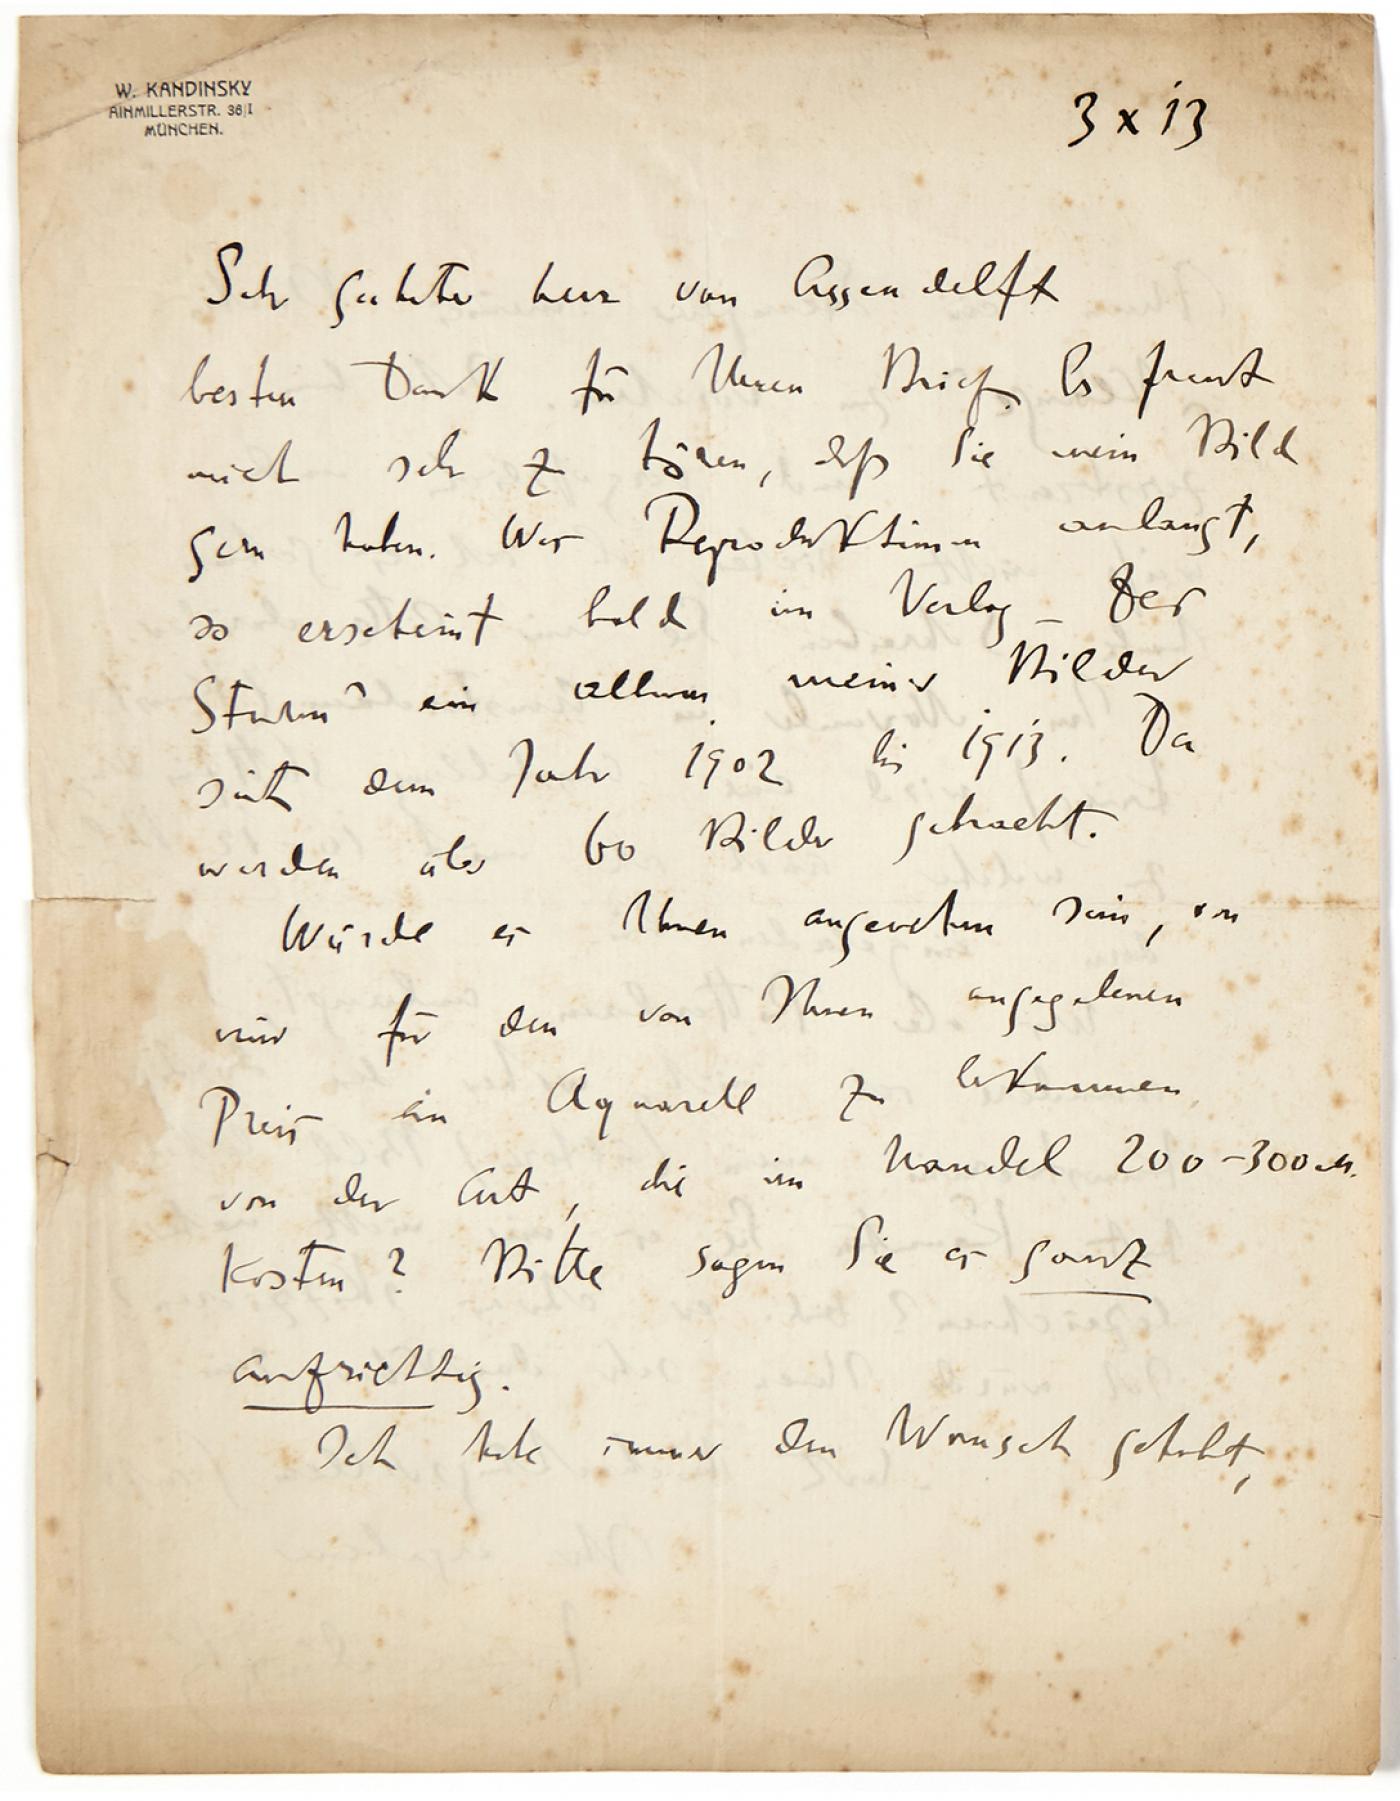 W. KANDINSKY
AINMILLERSTR. 36/I
MÜNCHEN.
3 x 13
Sehr geehrter Herr van Assendelft
besten Dank für Ihren Brief. Es freut
mich sehr zu hören, daß Sie mein Bild
gern haben. Was Reproduktionen anlangt,
so erscheint bald im Verlag „Der
Sturm“ ein Album meiner Bilder
seit dem Jahr 1902 bis 1913. Da
werden über 60 Bilder gebracht.
Würde es Ihnen angenehm sein, von
mir für den von Ihnen angegebenen
Preis ein Aquarell zu bekommen,
von der Art, die im Handel 200–300 M.
kosten? Bitte sagen Sie es ganz
aufrichtig.
Ich habe immer den Wunsch gehabt,